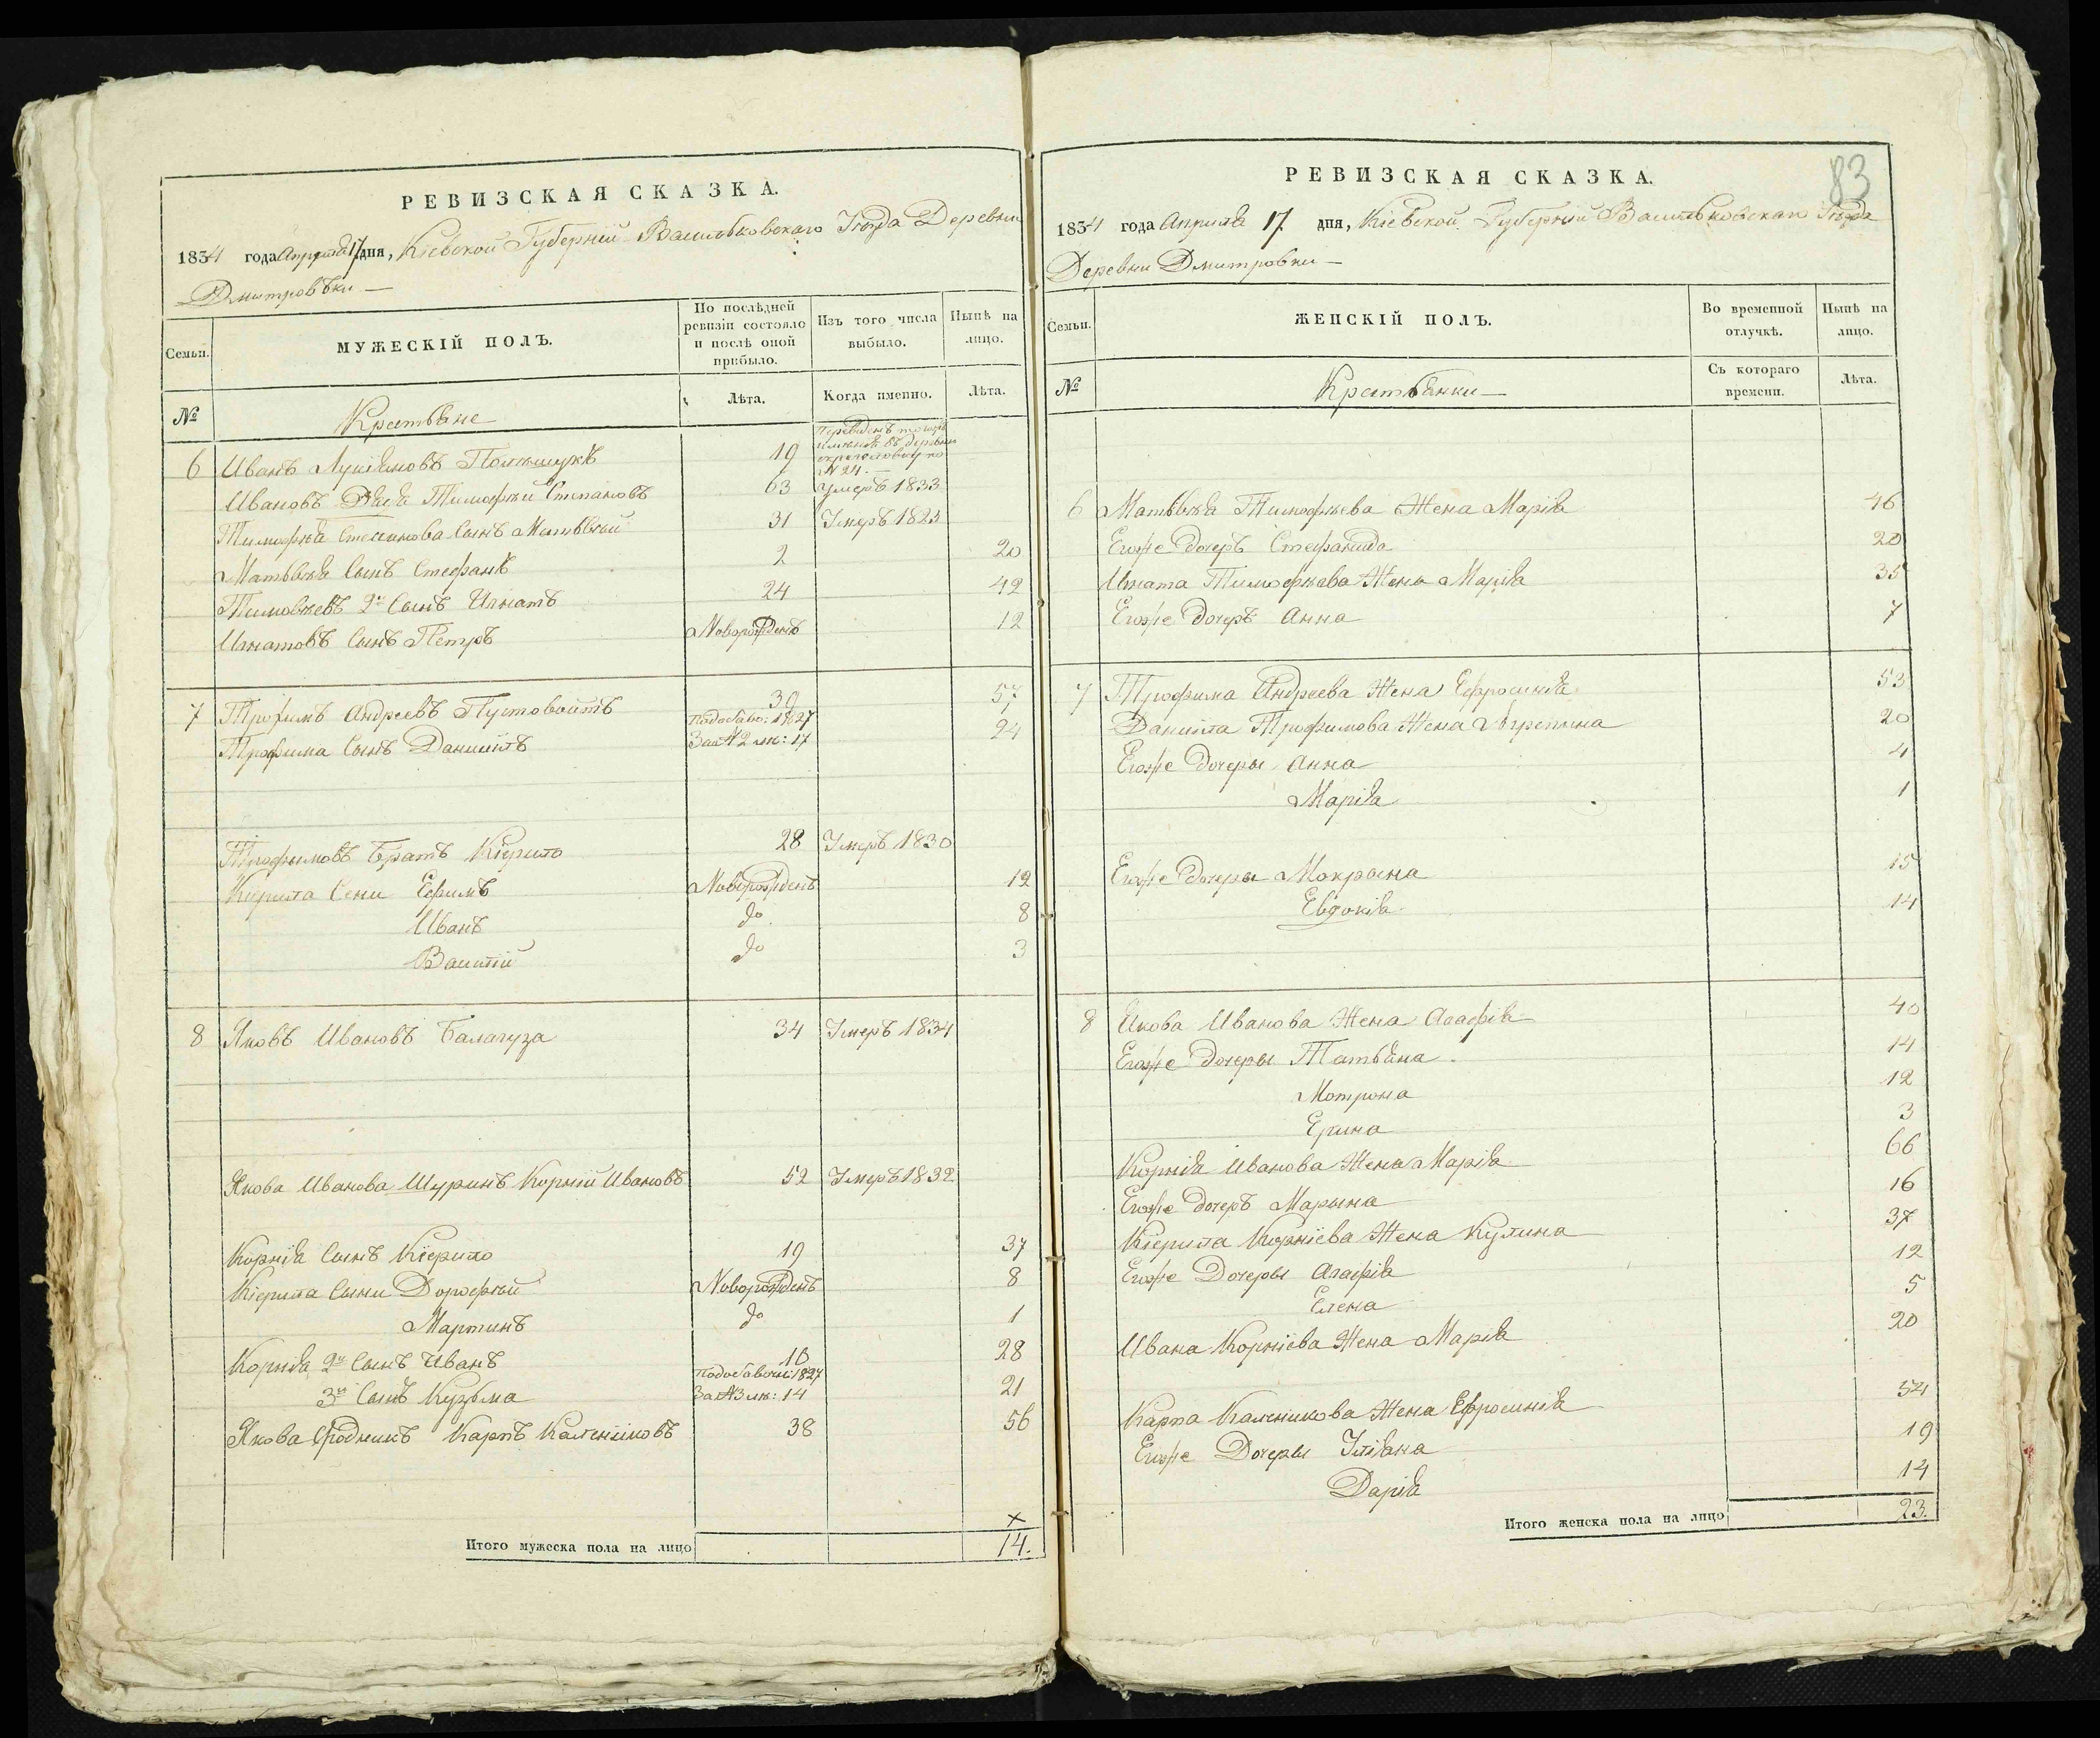 РЕВИЗСКАЯ СКАЗКА.
1834 года Апреля 17 дня, Кіевской Губерніи Васильковскаго Уезда Деревни
Дмитровъки —
Семьи. МУЖЕСКІЙ ПОЛЪ. По послѣдней ревизіи состояло и послѣ оной прибыло. Изъ того числа выбыло. Нынѣ на лицо.
№ Крестьяне Лѣта. Когда именно. Лѣта.
6 Иванъ Лукіяновъ Полѣщукъ 19 Переведенъ въ деревни № 24. —
Ивановъ Дядя Тимофѣй Степановъ 63 умеръ 1833
Тимофѣя Степанова Сынъ Матвѣй 31 Умеръ 1825
Матвѣя Сынъ Стефанъ 2 20
Тимовѣевъ 2й Сынъ Игнатъ 24 42
Игнатовъ Сынъ Петръ Новорожденъ 12
7 Трофимъ Андреевъ Пустовойтъ 39 57
Трофима Сынъ Даниилъ Подобаво: 1827 За №2 мъ: 17 24
Трофимовъ Братъ Кірило 28 Умеръ 1830
Кірила Сени Ефимъ Новорожденъ 12
Иванъ до 8
Василій до 3
8 Яковъ Ивановъ Балагуза 34 Умеръ 1834
Якова Иванова Шуринъ Корній Ивановъ 52 Умеръ 1832
Корнія Сынъ Кірило 19 37
Кірила Сыни Дорофѣй Новорожденъ 8
Мартинъ до 1
Корнія 2й Сынъ Иванъ 10 28
3й Сынъ Кузьма Подобавочн: 1827 За №3 мъ: 14 21
Якова Сродникъ Карпъ Каленіковъ 38 56
Итого мужеска пола на лицо 14.
83
РЕВИЗСКАЯ СКАЗКА.
1834 года Апреля 17 дня, Кіевской Губерніи Васильковскаго Уезда
Деревни Дмитровки —
Семьи. ЖЕНСКІЙ ПОЛЪ. Во временной отлучкѣ. Нынѣ на лицо.
№ Крестьянки — Съ котораго времени. Лѣта.
6 Матвѣя Тимофѣева Жена Марія 46
Егоже дочеръ Стефанида 20
Игната Тимофѣева Жена Марія 35
Егоже Дочеръ Анна 7
7 Трофима Андреева Жена Ефросинія 53
Данила Трофимова Жена Агрепина 20
Егоже Дочеры Анна 4
Марія 1
Егоже дочеры Мокрына 15
Евдокія 14
8 Якова Иванова Жена Агафія 40
Егоже Дочеры Татьяна 14
Мотрона 12
Ерина 3
Корнія Иванова Жена Марія 66
Егоже дочеръ Марына 16
Кірила Корніева Жена Кулина 37
Егоже Дочеры Агафія 12
Елена 5
Ивана Корніева Жена Марія 20
Карпа Каленикова Жена Ефросинія 54
Егоже Дочеры Уліяна 19
Дарія 14
Итого женска пола на лицо 23.